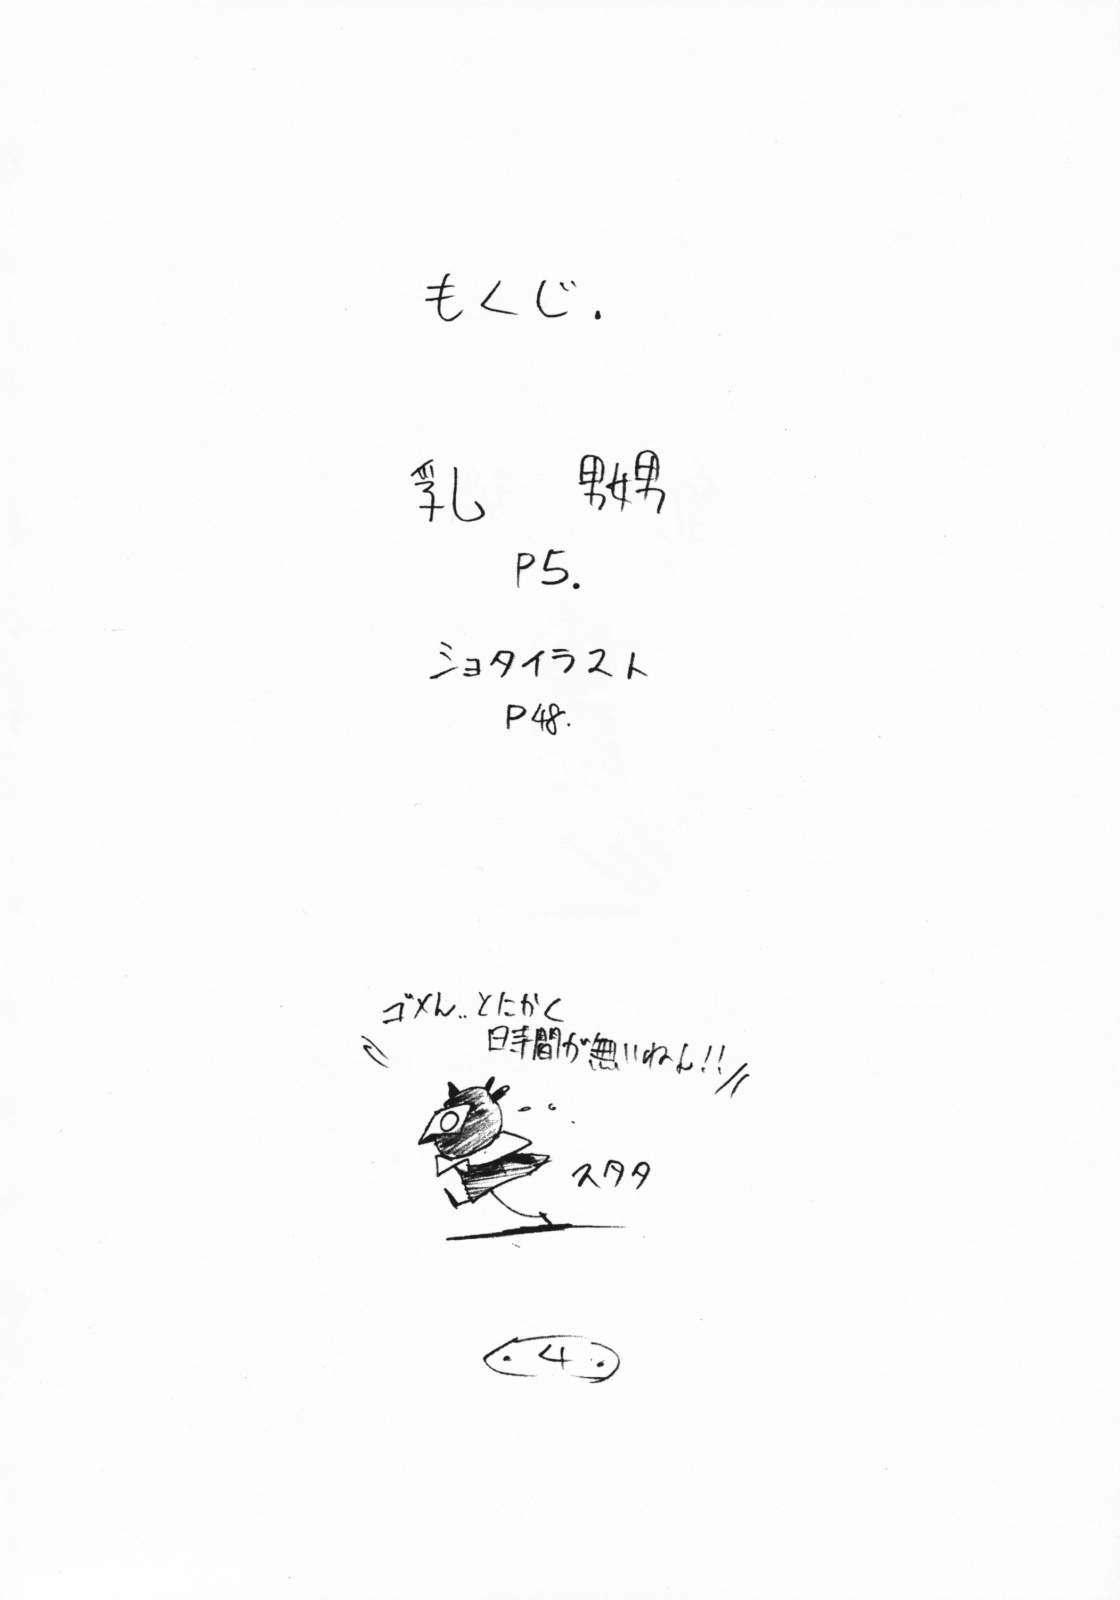 もくじ.
乳 嬲
P5.
ショタイラスト
P48.
ゴメん..とにかく
時間が無いねん!!
スタタ
・4・